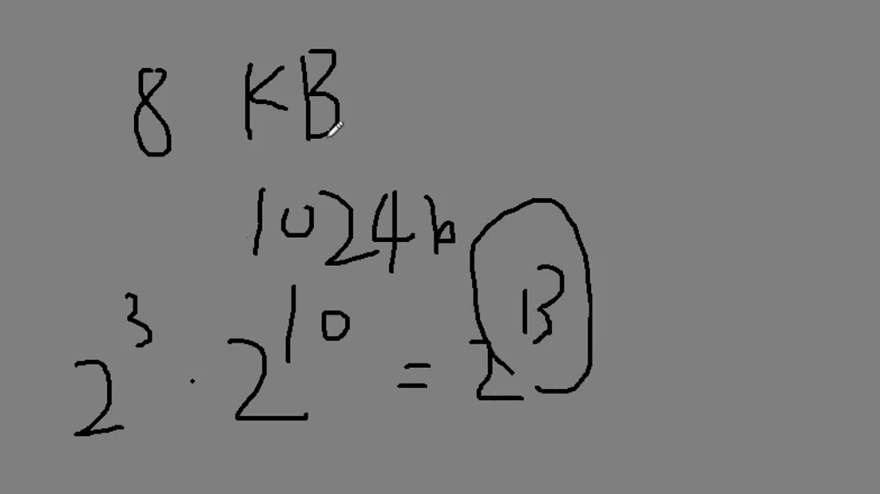 8 KB
1024b
2³ · 2¹⁰ = 2¹³